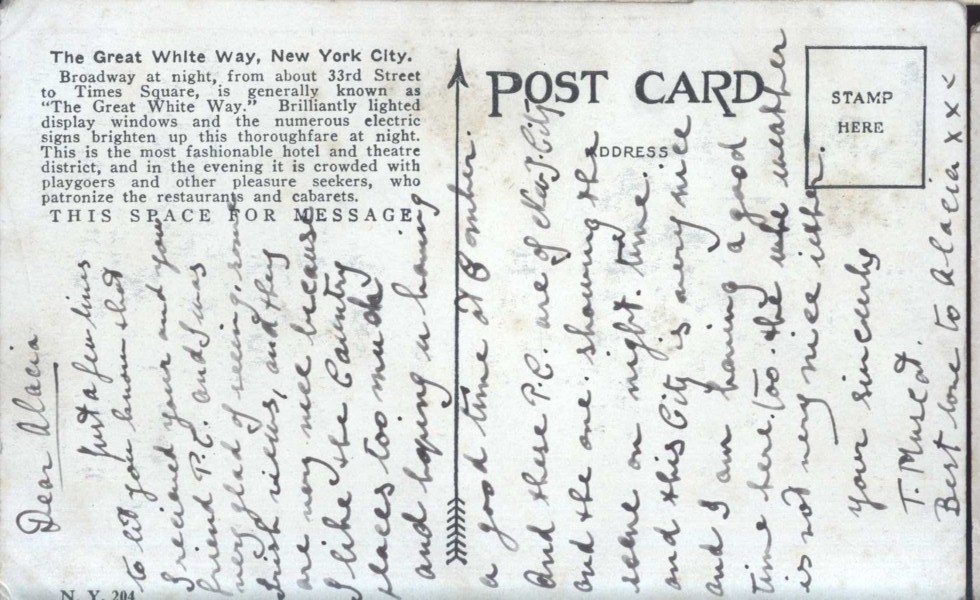 The Great White Way, New York City.
Broadway at night, from about 33rd Street
to Times Square, is generally known as
“The Great White Way.” Brilliantly lighted
display windows and the numerous electric
signs brighten up this thoroughfare at night.
This is the most fashionable hotel and theatre
district, and in the evening it is crowded with
playgoers and other pleasure seekers, who
patronize the restaurants and cabarets.
THIS SPACE FOR MESSAGE
POST CARD
ADDRESS
STAMP
HERE
N. Y. 204
Dear Alacia
Just a few lines
to let you know that
I received your and your
friend P.C. and I was
very glad of seeing some
views, and they
are very nice because
I like the Country
places too much
and hoping u having
a good time at
And these P.C. are of City
and the one showing the
scene on night time.
and this City is very nice
and I am having a good
time here too. the weather
is not very nice either.
your sincerly
T.
Best love to Alacia x x x